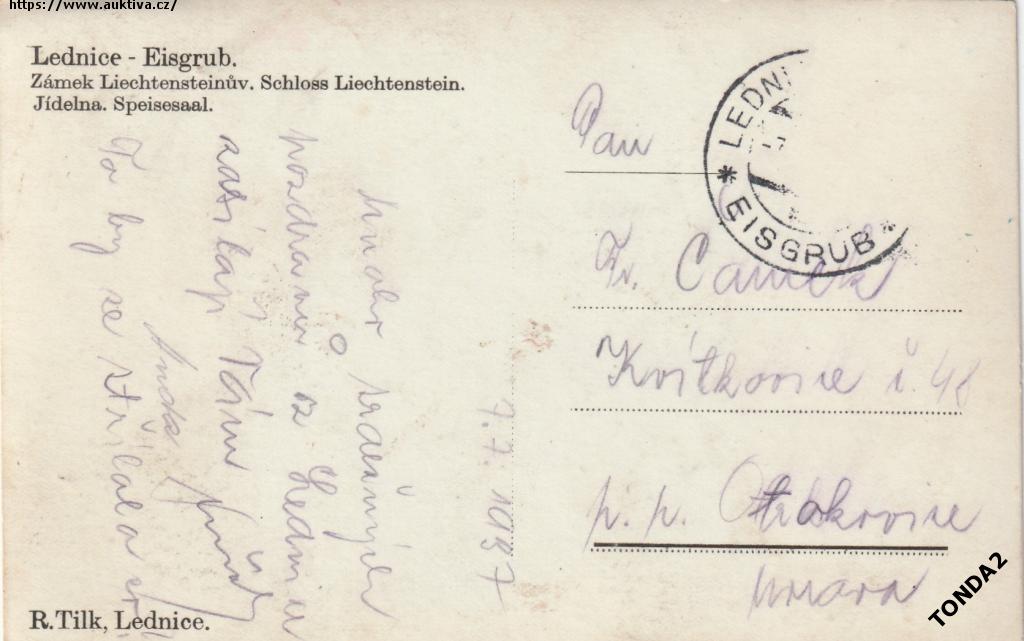 https://www.auktiva.cz/
Lednice - Eisgrub.
Zámek Liechtensteinův. Schloss Liechtenstein.
Jídelna. Speisesaal.
LEDNI
* EISGRUB *
Pan
Fr.
Kvítkovice č. 48
p. p. Otrokovice
Morava
7.7. 1937
Mnoho krásných
pozdravů z Lednice
zasílají Vám
To by se střílelo
R. Tilk, Lednice.
TONDA2